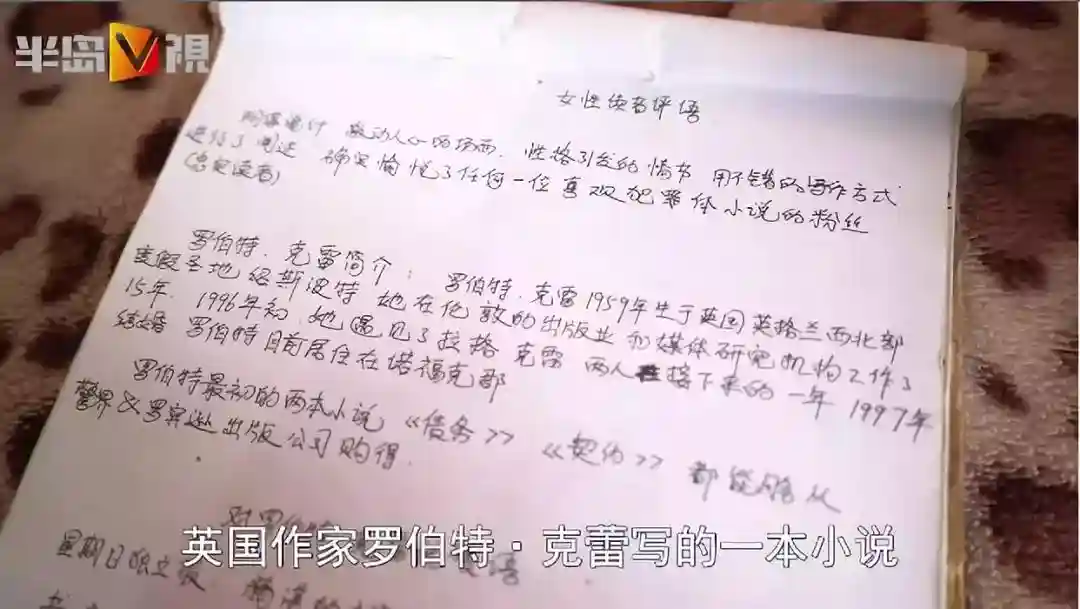 半岛V視
女性读者评语
阴谋诡计 激动人心的场面. 性格引发的情书 用不错的写作方式
进行了阐述 确定愉悦了任何一位喜欢犯罪体小说的粉丝
(忠实读者)
罗伯特.克雷简介: 罗伯特.克雷1959年生于英国英格兰西北部
度假圣地绍斯波特 她在伦敦的出版业和媒体研究机构工作了
15年. 1996年初.她遇见了拉格 克雷 两人 接下来的一年 1997年
结婚 罗伯特目前居住在诺福克郡
罗伯特最初的两本小说《债务》《契约》都能够从
警界&罗宾逊出版公司购得.
星期日独立报
英国作家罗伯特·克蕾写的一本小说